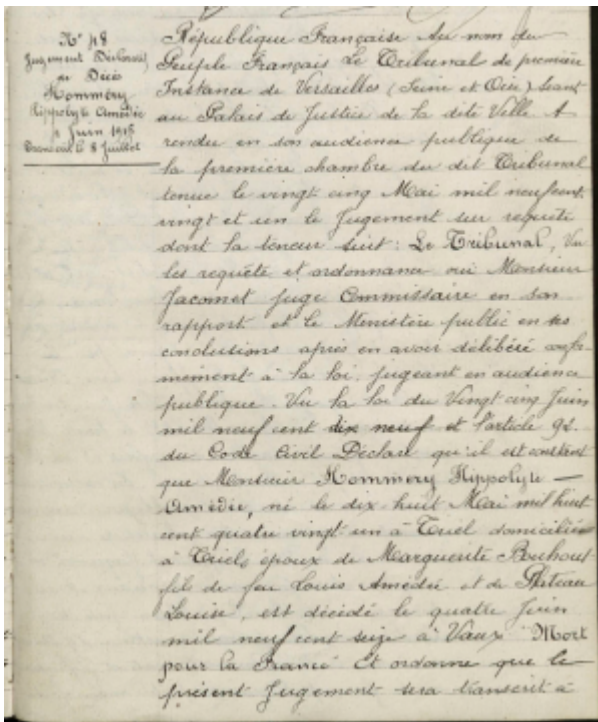 N° 48
Jugement Déclaratif
de Décès
Hommery
Hippolyte Amédée
Juin 1916
Transcrit le 8 Juillet
République Française Au nom du
Peuple Français Le Tribunal de première
Instance de Versailles (Seine et Oise) séant
au Palais de Justice de la dite Ville. A
rendu en son audience publique de
la première chambre du dit Tribunal
tenue le vingt cinq Mai mil neuf cent
vingt et un le Jugement sur requête
dont la teneur suit : Le Tribunal, Vu
les requête et ordonnance oui Monsieur
Jacomet juge Commissaire en son
rapport et le Ministère public en ses
conclusions après en avoir délibéré confor
mément à la loi, jugeant en audience
publique. Vu la loi du Vingt cinq Juin
mil neuf cent dix neuf et l'article 92.
du Code Civil Déclare qu'il est constant
que Monsieur Hommery Hippolyte —
Amédée, né le dix huit Mai mil huit
cent quatre vingt un à Triel domicilié
à Triels époux de Marguerite
fils de feu Louis Amédée et de
Louise, est décédé le quatre Juin
mil neuf cent seize à Vaux "Mort
pour la France" Et ordonne que le
présent Jugement sera transcrit à